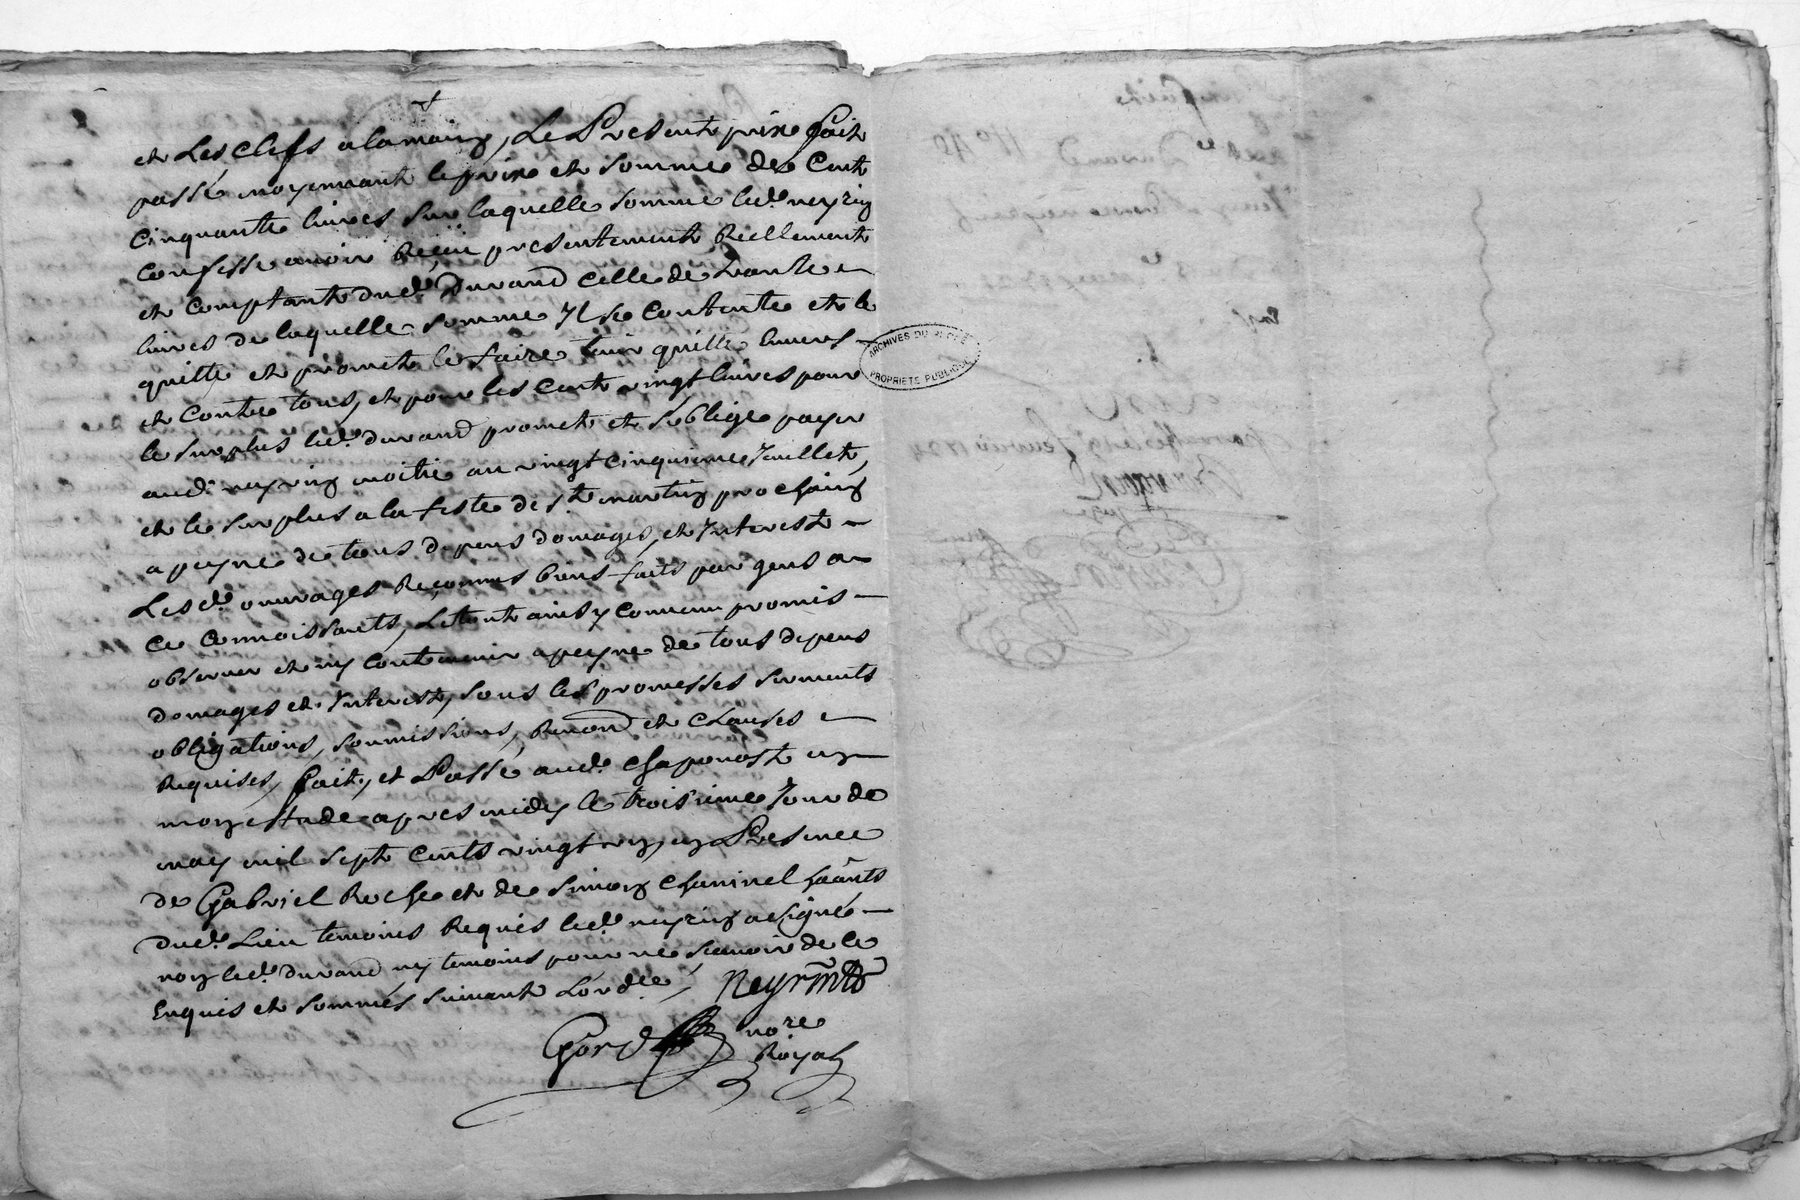 et les clefs a la main, Le Present prix fait
passé moyennant le prix et somme de Cent
cinquante livres sur laquelle somme led. neyrin
confesse avoir Reçeu presentement Réellement
et comptant dud. Durand celle de trante
livres de laquelle somme Il se contente et le
quitte et promet le faire tenir quitte Envers
et contre tous, et pour les cent vingt livres pour
le surplus led. durand promet et s'oblige payer
aud. neyrin moitié au vingt cinquieme Juillet,
et le surplus a la feste de st. martin prochain
a peyne de tous depens domages, et Interest
Lesd. ouvrages Reconnus biens faits par gens a
ce connoissants, Le tout ainsy convenu promis
observer et ny contrevenir a peyne de tous depens
domages et Interest, sous les promesses serments
obligations, soumissions, Renon et clauses
Requises, fait, et Passé aud. chaponost en
mon estude apres midy le troisieme Jour de
may mil sept cents vingt en Presence
de Gabriel Roche et de simon chaninel hâants
dud. Lieu temoins Requis led. neyrin a signé
non led. durand ny temoins pour ne scavoir de ce
Enquis et sommés suivant L'ordce,
Neyrin
nore
Royal
ARCHIVES DU
PROPRIETE PUBLIQUE